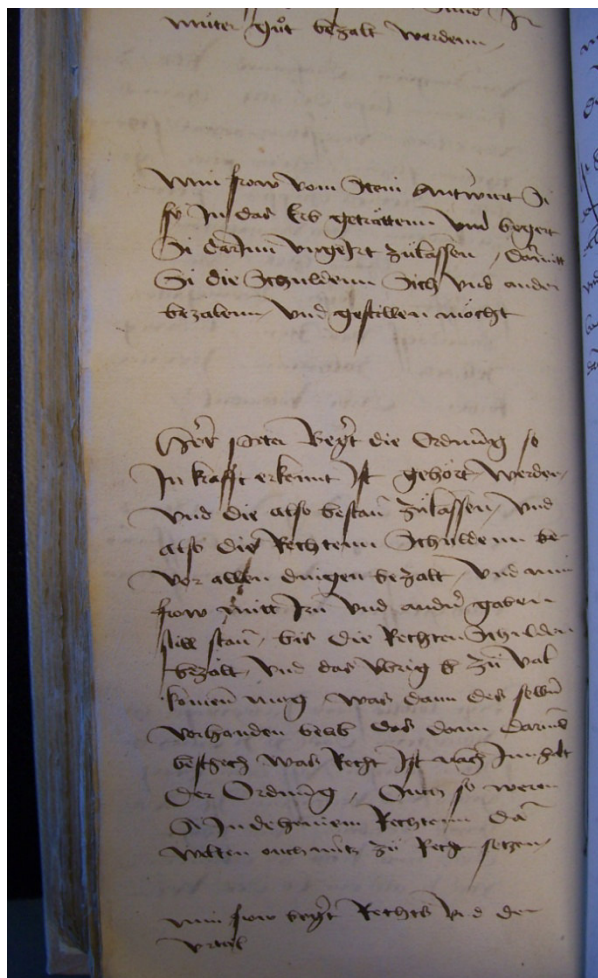 můter gůt bezalt werdenn,
min frow vom Stein Antwurt Si
sy In das Erb geträttenn vnd begert
Si darInn vngeIrt zůlassen, damitt
Si die Schuldenn Sich vnd ander
bezalenn vnd gestillen möcht
Her peter begert die Ordnung so
In krafft erkennt Ist gehört werden,
vnd die also bestan zůlassen, vnd
also die Rechtenn Schuldenn be
vor allen dingen bezalt, vnd min
frow mitt Irn vnd andern gaben
still stan, bis die Rechten Schulden
bezalt, vnd das vbrig zů val
komen mag was dann des selben
vorhanden belib das dann darumb
beschech was Recht Ist nach Innhalt
der Ordnung, Ouch so weren
Si In deheinem Rechtenn Da
wölten ouch nütz zů Recht setzen,
min frow begert Rechts vnd der
vrteil